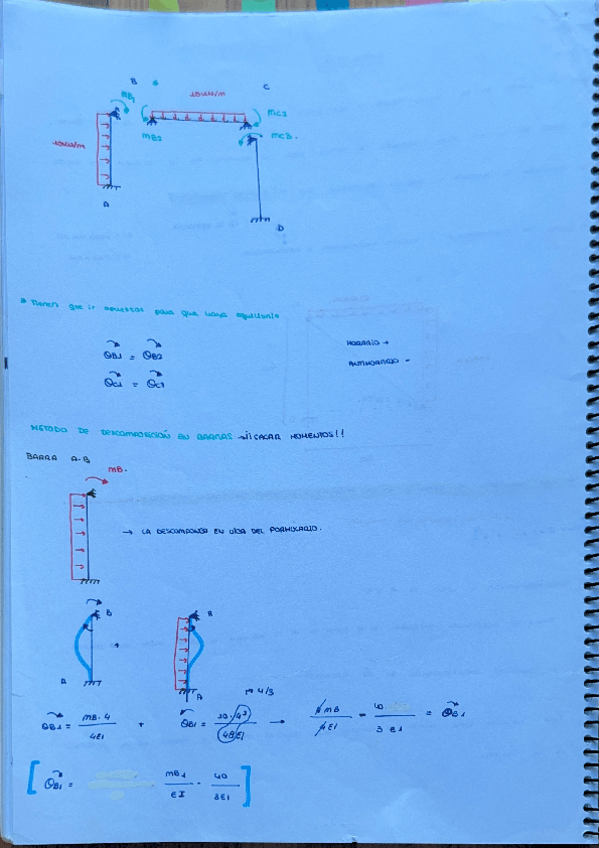 B C
mB1 10kN/m mC2
mB2 mCB.
10kN/m
A
D
* Tienen que ir opuestos para que haya equilibrio
θB1 = θB2 HORARIO +
θC1 = θC2 ANTIHORARIO -
MÉTODO DE DESCOMPOSICIÓN EN BARRAS →¡¡SACAR MOMENTOS!!
BARRA A-B
mB.
→ LA DESCOMPONGO EN UDS DEL FORMULARIO.
B + B
A A
→ 4/3
θB1 = mB·4 / 4EI + θB1 = 10·4³ / 48EI → 4mB / 4EI - 40 / 3EI = θB1
[ θB1 = mB1 / EI - 40 / 3EI ]